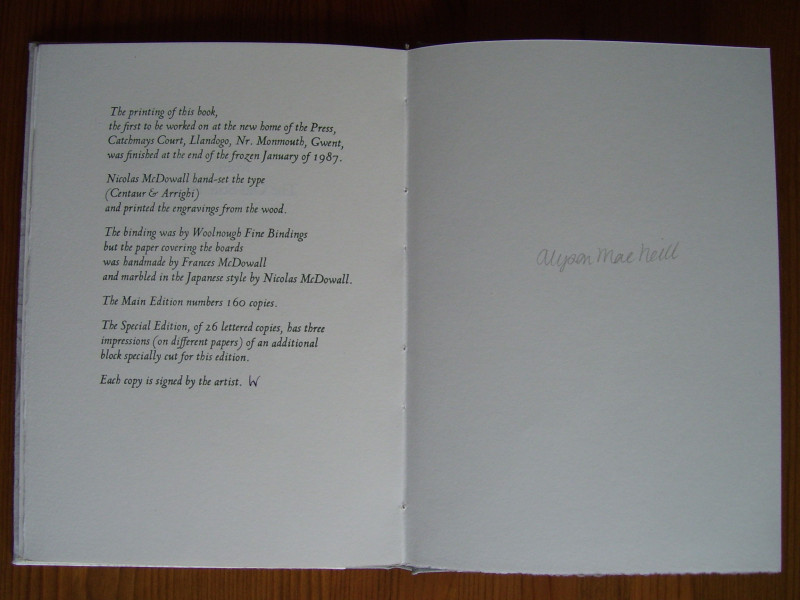 The printing of this book,
the first to be worked on at the new home of the Press,
Catchmays Court, Llandogo, Nr. Monmouth, Gwent,
was finished at the end of the frozen January of 1987.
Nicolas McDowall hand-set the type
(Centaur & Arrighi)
and printed the engravings from the wood.
The binding was by Woolnough Fine Bindings
but the paper covering the boards
was handmade by Frances McDowall
and marbled in the Japanese style by Nicolas McDowall.
The Main Edition numbers 160 copies.
The Special Edition, of 26 lettered copies, has three
impressions (on different papers) of an additional
block specially cut for this edition.
Each copy is signed by the artist. W
Alyson MacNeill